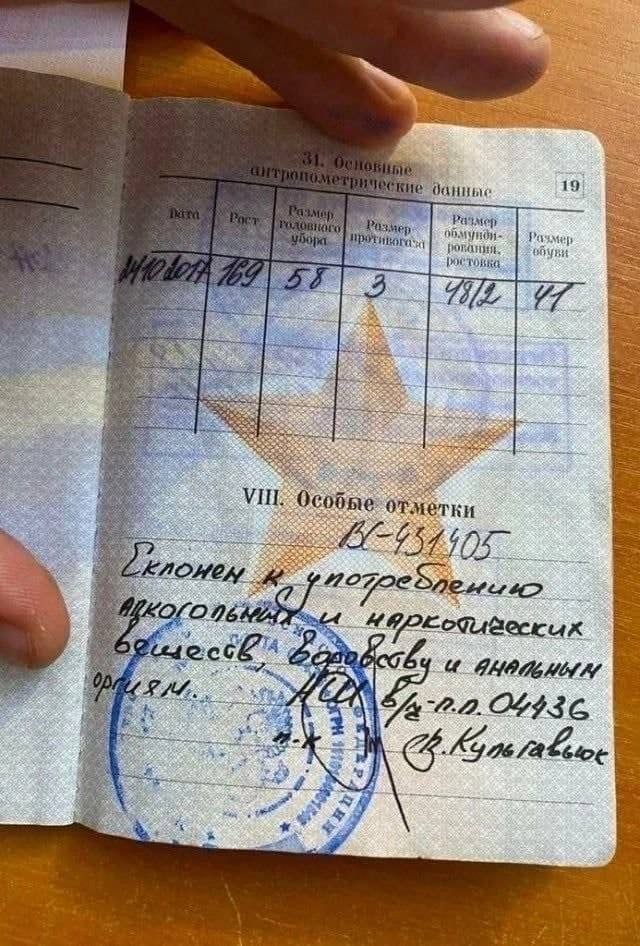 31. Основные
антропометрические данные
19
Дата
Рост
Размер
головного
убора
Размер
противогаза
Размер
обмунди-
рования,
ростовка
Размер
обуви
24.10.2017 169 58 3 48/2 41
VIII. Особые отметки
ВС-431405
Склонен к употреблению
алкогольных и наркотических
веществ, воровству и анальным
оргиям.. НШ в/ч-п.п. 04436
п-к Кульгавьюк